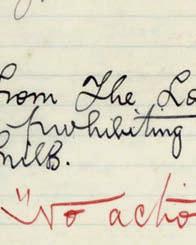 from The Lo
prohibiting
milk.
"No actio